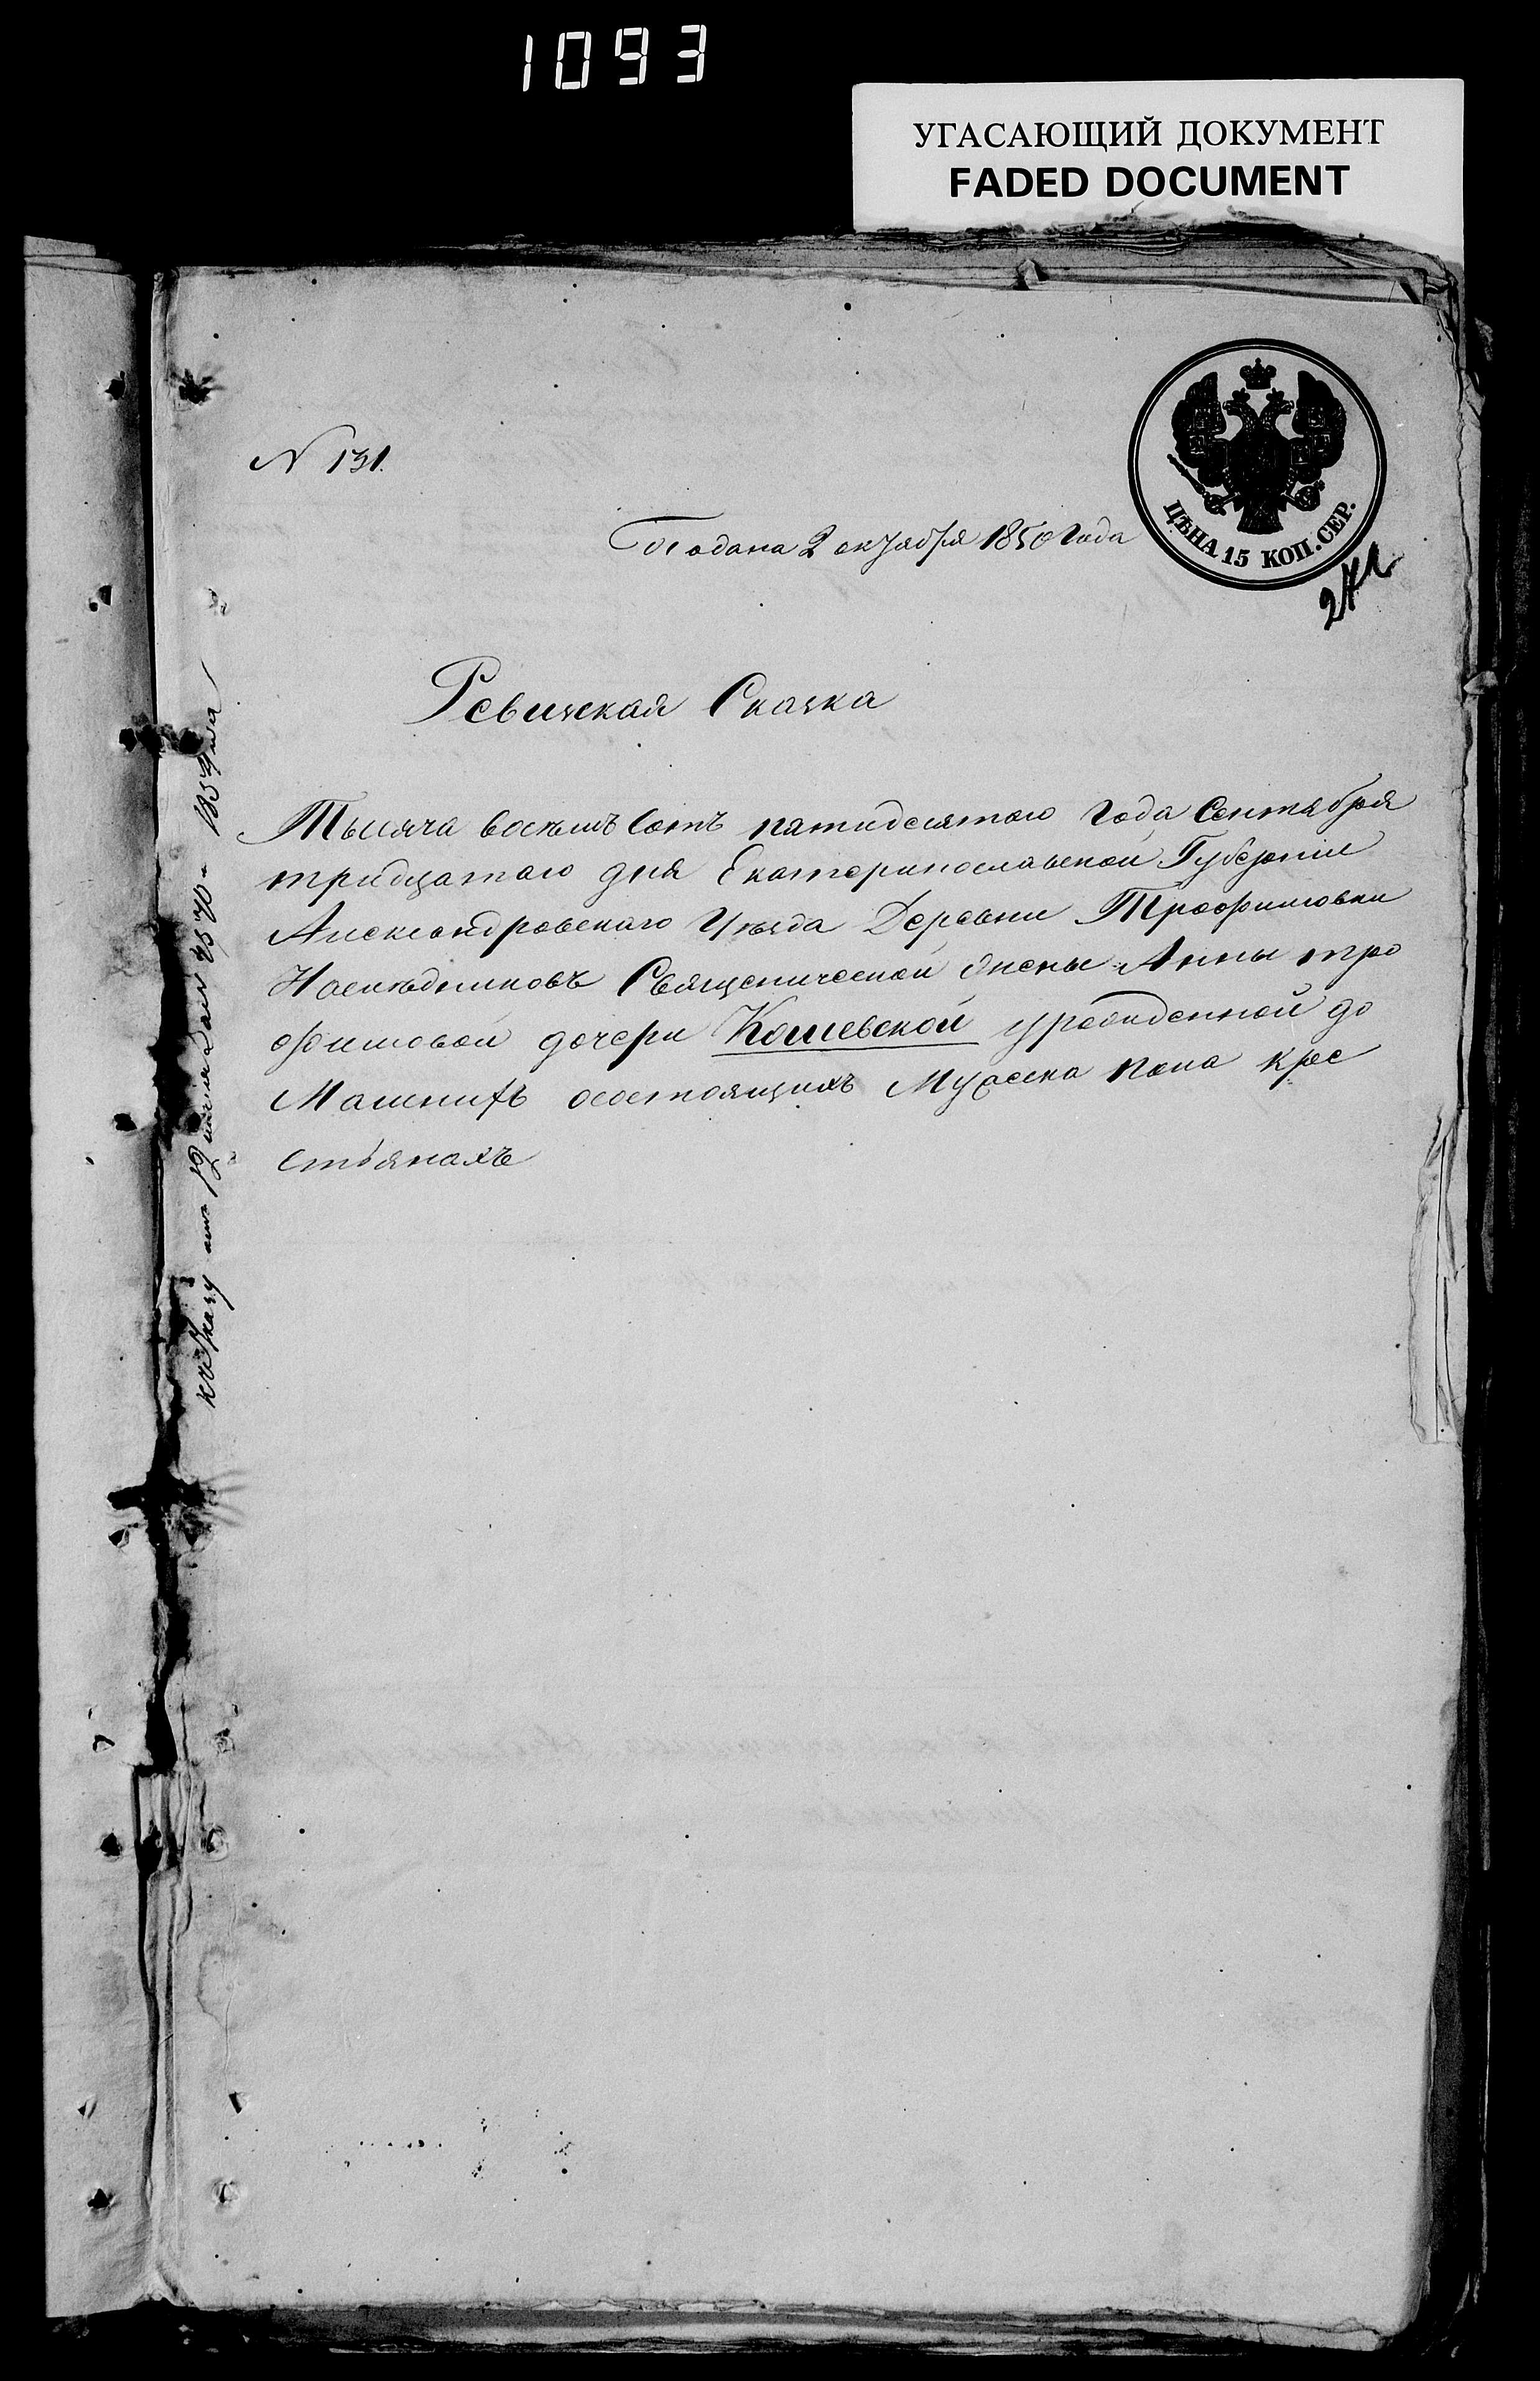 1093
УГАСАЮЩИЙ ДОКУМЕНТ
FADED DOCUMENT
N 131.
ЦѢНА 15 КОП. СЕР.
Подана 2 октября 1850 Года
Ревизская Сказка
Тысяча восемь Сотъ пятидесятаго Года Сентября
тридцатаго дня Екатеринославской Губерніи
Александровскаго Уѣзда Деревни Трофимовки
Наслѣдниковъ Священической жены Анны тро
фимовой дочери Кошевской урожденной до
осостоящихъ Мужеска пола крес
стьянахъ